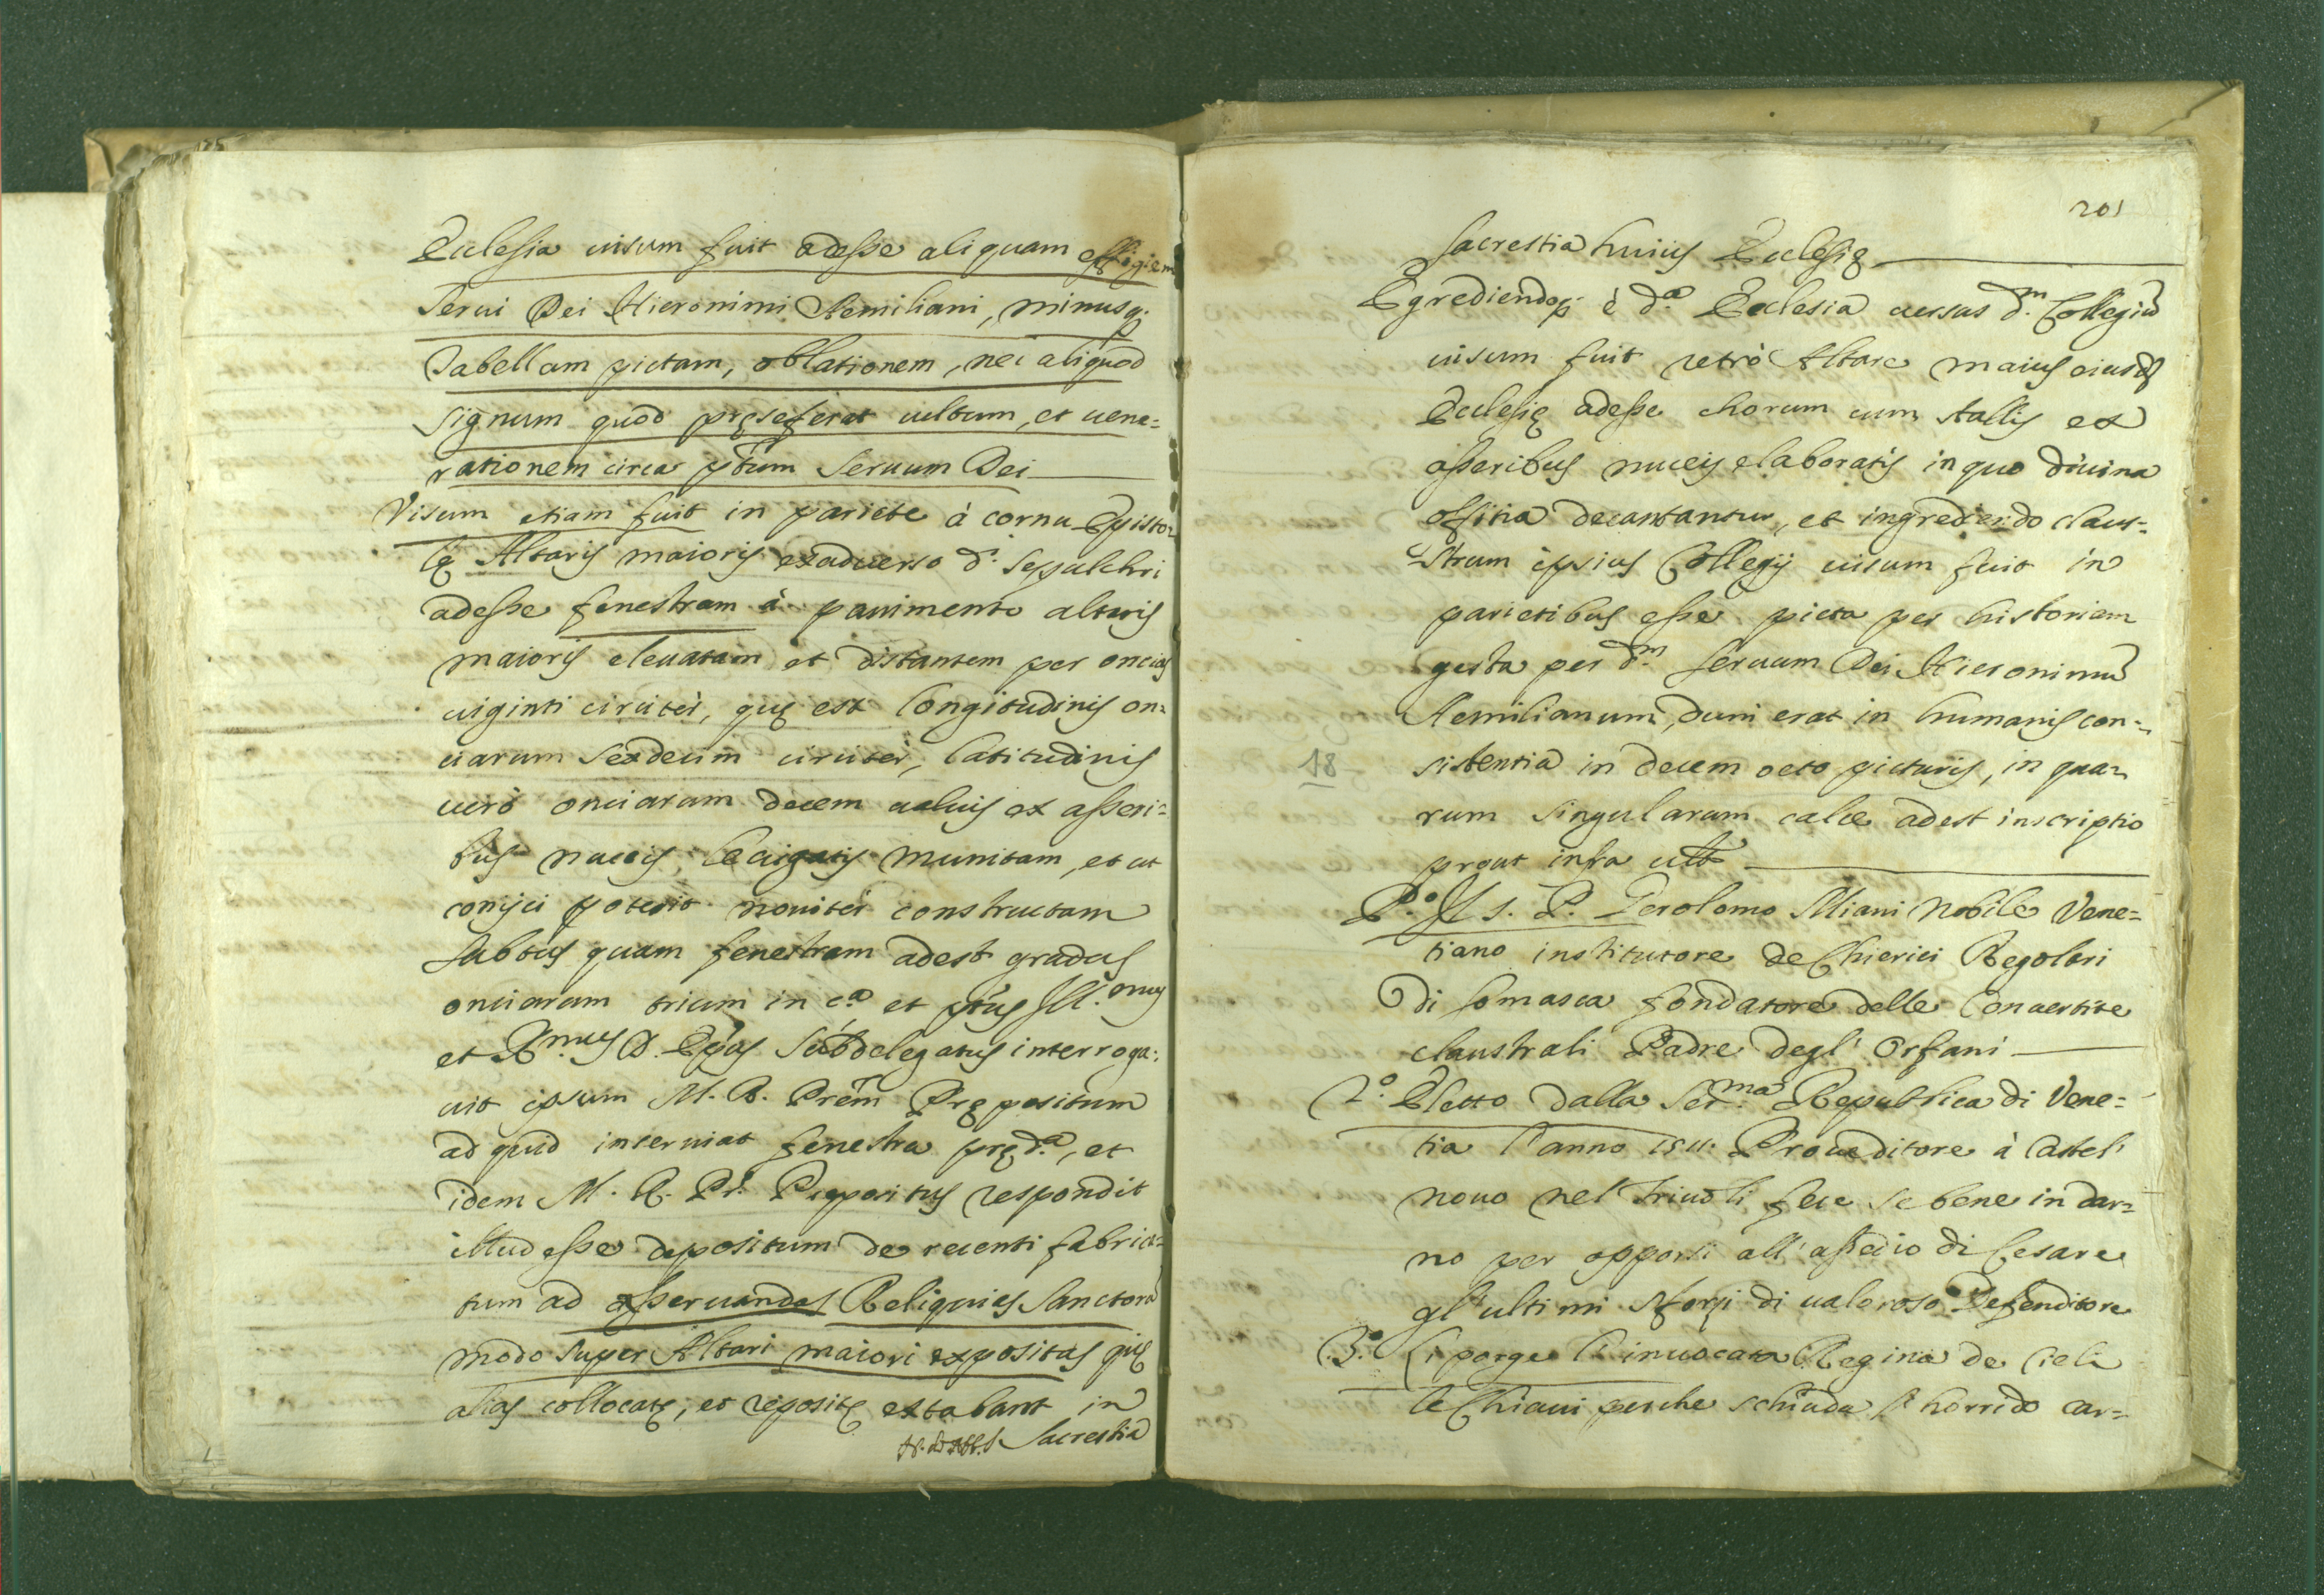 Ecclesia uisum fuit adesse aliquam effigiem
Serui Dei Hieronimi Aemiliani, minusq;
Tabellam pictam, oblationem, nec aliquod
signum quod pręseferat cultum, et uene=
rationem circa pt̃um Seruum Dei
Visum etiam fuit in pariete à cornu Episto=
lę Altaris maioris exaduerso d.i sepulchri
adesse fenestram à pauimento altaris
maioris eleuatam et distantem per oncias
uiginti circiter, quę est longitudinis on=
ciarum sexdecim circiter, latitudinis
uerò onciarum decem ualuis ex asseri=
bus nuceis leuigatis munitam, et ut
conijci poterit nouiter constructam
subtus quam fenestram adest gradus
onciarum trium in c.a et pt̃us Ill.mus
et R.mus D. Ep̃us Subdelegatus interroga=
uit ipsum M. R. Prẽm Prępositum
ad quid inseruiat fenestra pręd.a, et
idem M. R. Pr̃. Prępositus respondit
illud esse depositum de recenti fabrica=
tum ad asseruandas Reliquias Sanctorũ
modo super Altari maiori expositas quę
alias collocatę, et repositę extabant in
Sacrestia
201
sacrestia huius Ecclesię
Egrediendoq; è d.a Ecclesia uersus d.m Collegiũ
uisum fuit retrò Altare maius eiusd̃
Ecclesię adesse chorum cum stallis ex
asseribus nuceis elaboratis in quo diuina
offitia decantantur, et ingrediendo claus=
strum ipsius Collegij uisum fuit in
parietibus esse picta per historiam
gesta per d.m seruum Dei Hieronimũ
Aemilianum, dum erat in humanis con=
18 sistentia in decem octo picturis, in qua=
rum singularum calce adest inscriptio
prout infra ult.
P.o Il S. P. Gerolomo Miani Nobile Vene=
tiano institutore de Chierici Regolari
di Somasca fondatore delle Conuertite
claustrali Padre degl' Orfani
2.o Eletto dalla Ser.ma Republica di Vene=
tia l'anno 1511. Proueditore à Castel
nouo nel Friuoli fece se bene in dar=
no per opporsi all' assedio di Cesare
gl'ultimi sforzi di ualoroso Defenditore
3.o Li porge l'inuocata Regina de Cieli
le Chiaui perche schiuda l'horrido car=